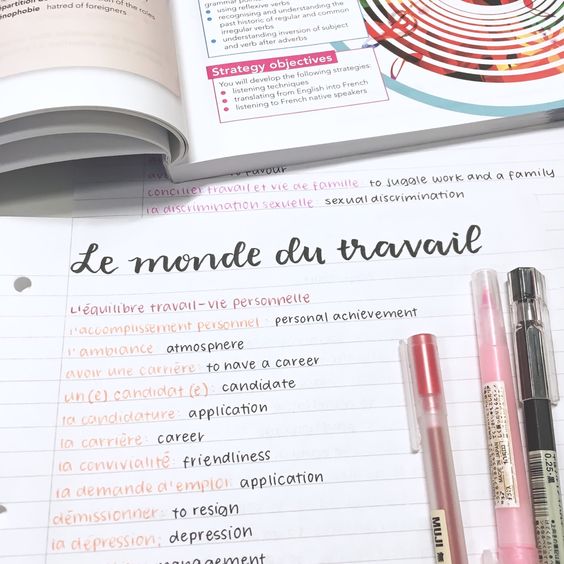 partition of the roles
hatred of foreigners
using reflexive verbs
recognising and understanding the
past historic of regular and common
irregular verbs
understanding inversion of subject
and verb after adverbs
Strategy objectives
You will develop the following strategies:
listening techniques
translating from English into French
listening to French native speakers
concilier travail et vie de famille to juggle work and a family
la discrimination sexuelle sexual discrimination
Le monde du travail
L'équilibre travail-vie personnelle
l'accomplissement personnel: personal achievement
l'ambiance atmosphere
avoir une carrière: to have a career
un(e) candidat(e): candidate
la candidature: application
la carrière: career
la convivialité: friendliness
la demande d'emploi: application
démissionner: to resign
la dépression: depression
management
MUJI
0.25